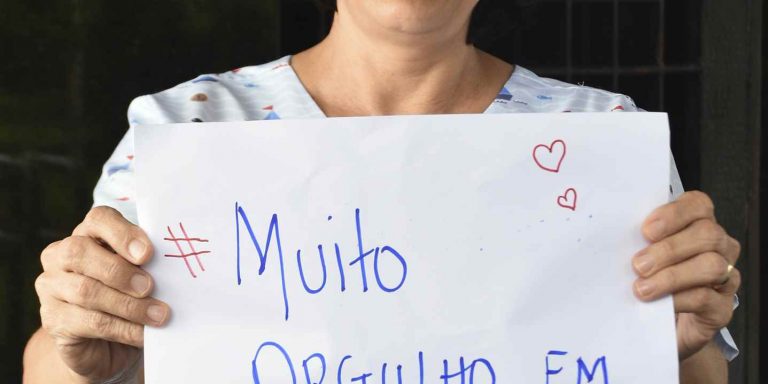 #Muito
ORGULHO EM